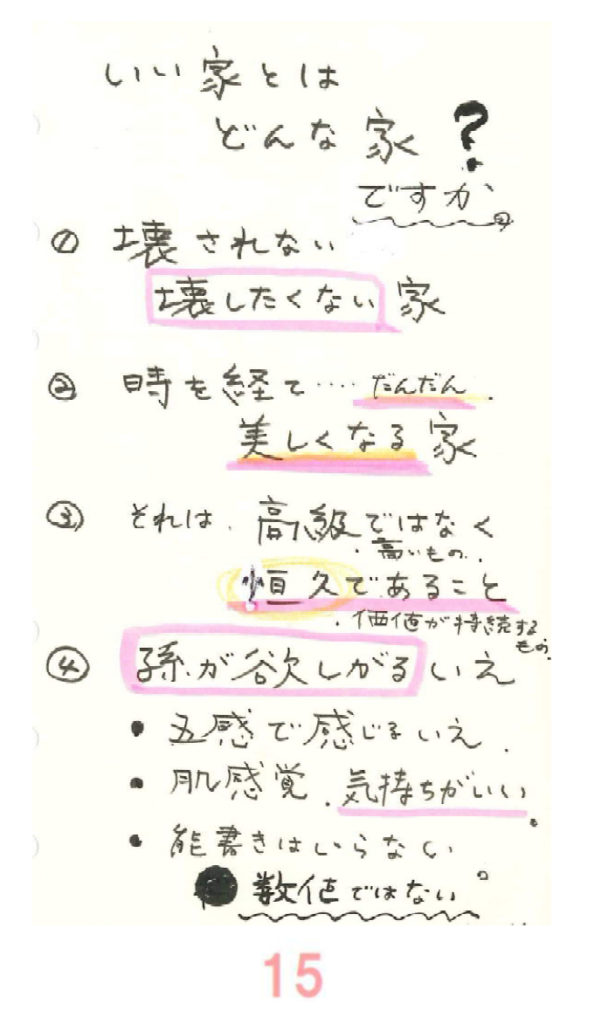 いい家とは
どんな家？
ですか。
① 壊されない
壊したくない家
② 時を経て‥‥だんだん
美しくなる家
③ それは、高級ではなく
・高いもの。
恒久であること
・価値が持続する
もの。
④ 孫が欲しがるいえ
• 五感で感じるいえ。
• 肌感覚、気持ちがいい。
• 能書きはいらない
数値ではない。
15